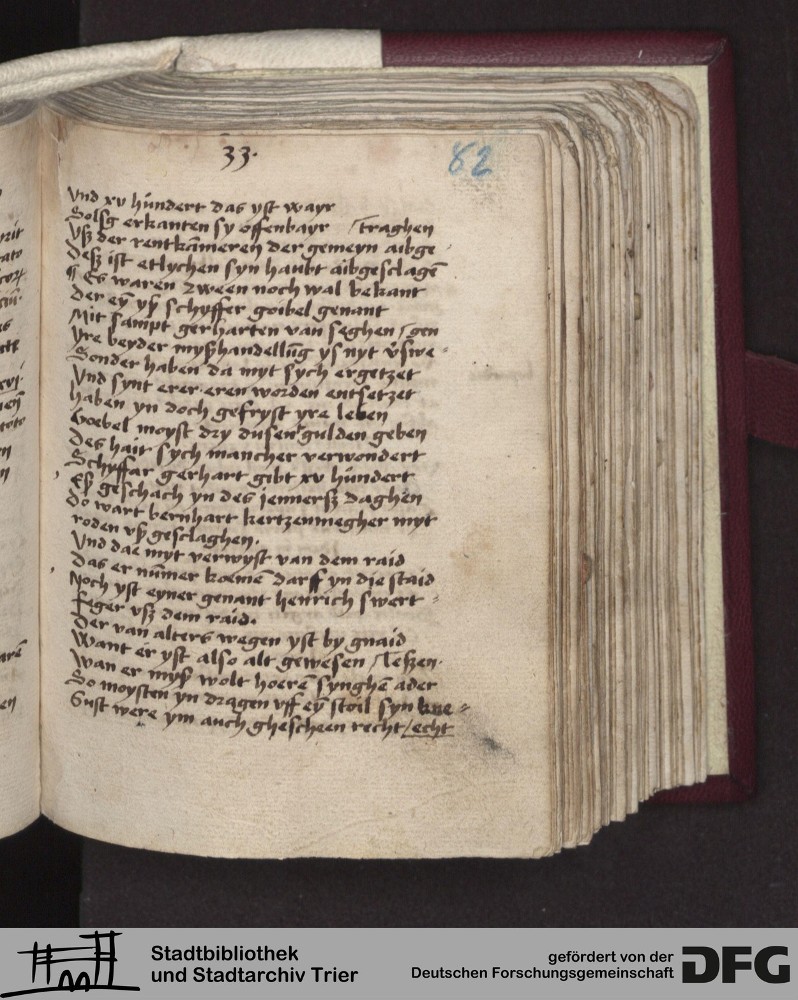 33.
82
Vnd xv hundert das yst wayr
Solsz erkanten sy offenbayr / traghen
Vsz der rentkāmeren der gemeyn aibge
Desz ist etlychen syn haubt aibgesclagē
¶ Es waren zween noch wal bekant
Der eÿ yß schyffer goibel genant
Mit sampt gerharten van seghen / gen
Yre beyder myszhandellūg ys nyt v̄swe
Sonder haben da myt sych ergetzet
Vnd synt erer eren worden entsetzet
haben yn doch gefryst yre leben
Goebel moyst dry dusent gulden geben
Des hait sych mancher verwondert
Schyffar gerhart gibt xv hundert
Eß geschach yn des jennersz daghen
Do wart bernhart kertzenmegher myt
roden vß gesclaghen.
Vnd dae myt verwyst van dem raid
Das er nūmer koemē darff yn die staid
Noch yst eyner genant henrich swert
feger vsz dem raid.
Der van alters wegen yst by gnaid
Want er yst also alt gewesen / leszen.
Wan er myß wolt hoerē synghē ader
So moysten yn dragen vff eÿ stoil syn kne
Sust were ym auch ghescheen recht / echt
Stadtbibliothek
und Stadtarchiv Trier
gefördert von der
Deutschen Forschungsgemeinschaft
DFG